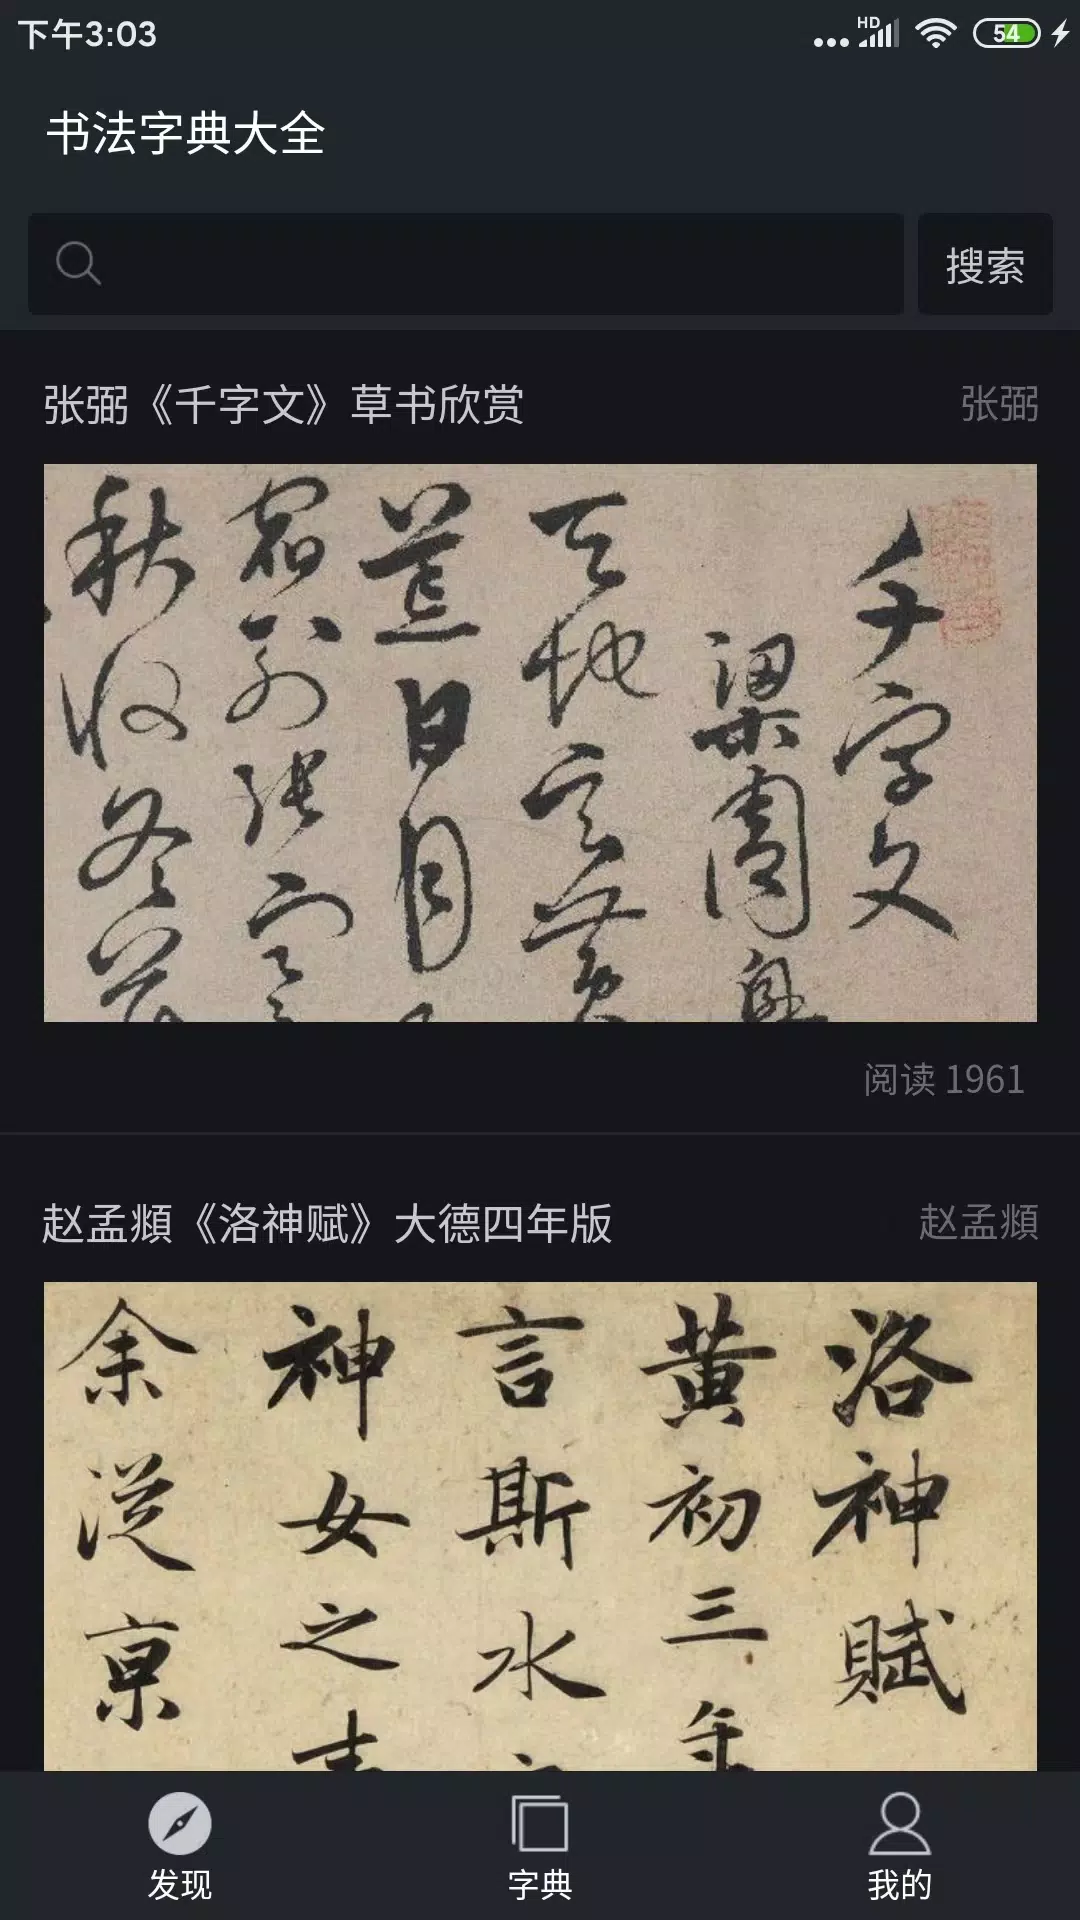 下午3:03
HD
54
书法字典大全
搜索
张弼《千字文》草书欣赏
张弼
千字文
梁周興
天地玄黄
荒日月
宿列张寒
秋收冬藏
阅读 1961
赵孟頫《洛神赋》大德四年版
赵孟頫
洛神賦
黄初三年
言斯水
神女之
余從京
发现
字典
我的